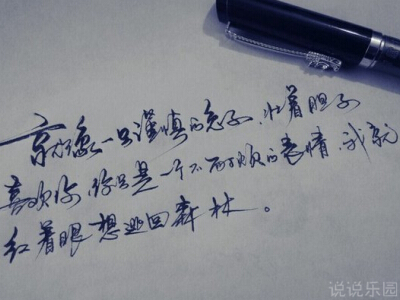 就像一只谨慎的兔子，壮着胆子
喜欢你，你只是一个不耐烦的表情，我就
红着眼想逃回森林。
说说乐园